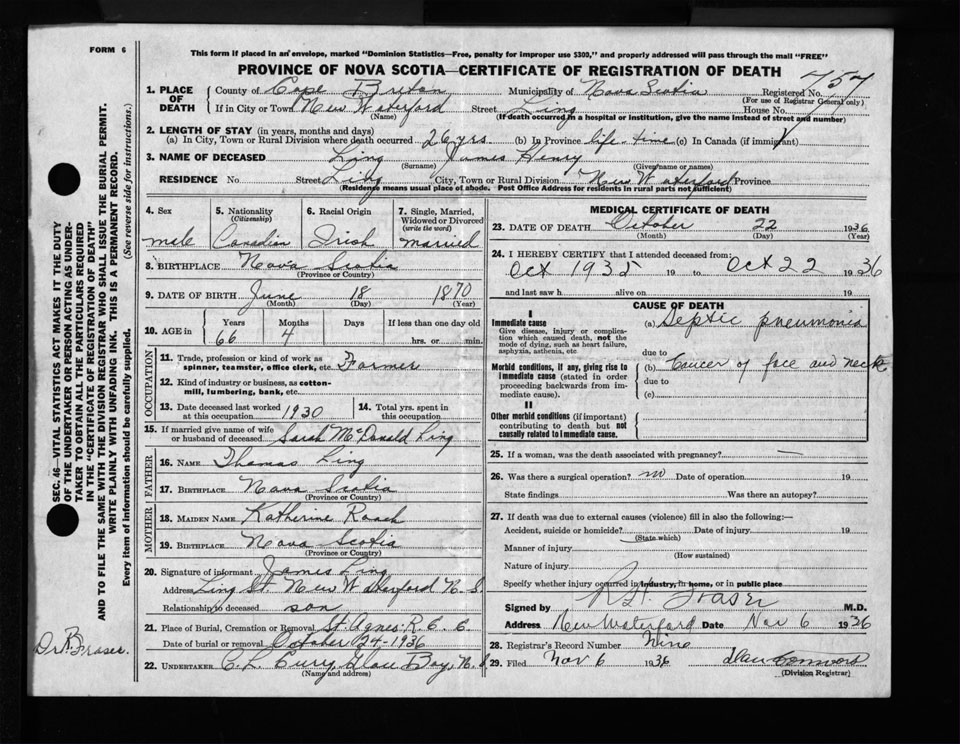 FORM 6
This form if placed in an envelope, marked "Dominion Statistics—Free, penalty for improper use $300," and properly addressed will pass through the mail "FREE"
PROVINCE OF NOVA SCOTIA—CERTIFICATE OF REGISTRATION OF DEATH
757
1. PLACE OF DEATH
County of Cape Breton Municipality of Nova Scotia Registered No.
(For use of Registrar General only)
If in City or Town New Waterford Street Ling House No.
(Name) (If death occurred in a hospital or institution, give the name instead of street and number)
2. LENGTH OF STAY (in years, months and days)
(a) In City, Town or Rural Division where death occurred 26 yrs (b) In Province life-time (c) In Canada (if immigrant)
3. NAME OF DECEASED Ling James Henry
(Surname) (Given name or names)
RESIDENCE No. Street Ling City, Town or Rural Division New Waterford Province
(Residence means usual place of abode. Post Office Address for residents in rural parts not sufficient)
4. Sex
male
5. Nationality
(Citizenship)
Canadian
6. Racial Origin
Irish
7. Single, Married, Widowed or Divorced
(write the word)
married
8. BIRTHPLACE Nova Scotia
(Province or Country)
9. DATE OF BIRTH June 18 1870
(Month) (Day) (Year)
10. AGE in Years Months Days If less than one day old
66 4 hrs. or min.
OCCUPATION
11. Trade, profession or kind of work as spinner, teamster, office clerk, etc. Farmer
12. Kind of industry or business, as cotton-mill, lumbering, bank, etc.
13. Date deceased last worked at this occupation 1930
14. Total yrs. spent in this occupation
15. If married give name of wife or husband of deceased Sarah McDonald Ling
FATHER
16. NAME Thomas Ling
17. BIRTHPLACE Nova Scotia
(Province or Country)
MOTHER
18. MAIDEN NAME Katherine Roach
19. BIRTHPLACE Nova Scotia
(Province or Country)
20. Signature of informant James Ling
Address Ling St. New Waterford N.S.
Relationship to deceased son
21. Place of Burial, Cremation or Removal St. Agnes R.C.C.
Date of burial or removal October 24-1936
22. UNDERTAKER C. L. Curry, Glace Bay, N.S.
(Name and address)
MEDICAL CERTIFICATE OF DEATH
23. DATE OF DEATH October 22 1936
(Month) (Day) (Year)
24. I HEREBY CERTIFY that I attended deceased from:
Oct 1935 19 to Oct 22 1936
and last saw h alive on 19
CAUSE OF DEATH
I
Immediate cause
Give disease, injury or complication which caused death, not the mode of dying, such as heart failure, asphyxia, asthenia, etc
(a) Septic pneumonia
due to
Morbid conditions, if any, giving rise to immediate cause (stated in order proceeding backwards from immediate cause).
(b) Cancer of face and neck
due to
(c)
II
Other morbid conditions (if important) contributing to death but not causally related to immediate cause.
25. If a woman, was the death associated with pregnancy? —
26. Was there a surgical operation? no Date of operation 19
State findings Was there an autopsy?
27. If death was due to external causes (violence) fill in also the following:—
Accident, suicide or homicide? Date of injury 19
(State which)
Manner of injury
(How sustained)
Nature of injury
Specify whether injury occurred in industry, in home, or in public place
Signed by R H Fraser M.D.
Address New Waterford Date Nov 6 1936
28. Registrar's Record Number Nine
29. Filed Nov 6 1936
(Division Registrar)
SEC. 46—VITAL STATISTICS ACT MAKES IT THE DUTY
OF THE UNDERTAKER OR PERSON ACTING AS UNDERTAKER TO OBTAIN ALL THE PARTICULARS REQUIRED
IN THE "CERTIFICATE OF REGISTRATION OF DEATH"
AND TO FILE THE SAME WITH THE DIVISION REGISTRAR WHO SHALL ISSUE THE BURIAL PERMIT.
WRITE PLAINLY WITH UNFADING INK. THIS IS A PERMANENT RECORD.
Every item of information should be carefully supplied. (See reverse side for instructions.)
Dr. R. Fraser.